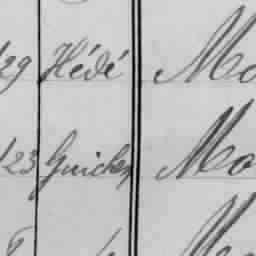 29 Hédé Mo
123 Guichen Mo